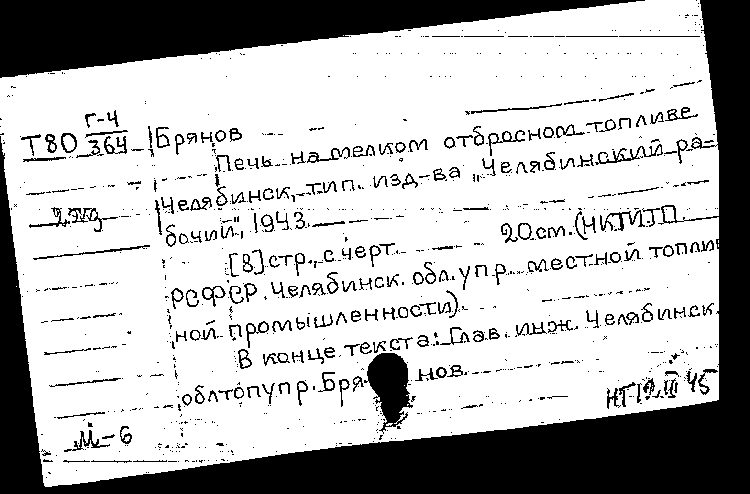 Г-4
Т80 364 Брянов
Печь на мелком отбросном топливе
Челябинск, тип. изд-ва „Челябинский ра-
бочий", 1943.
[8] стр., с черт. 20 см. (НКТИТП
РСФСР. Челябинск. обл. упр. местной топлив
ной промышленности).
В конце текста: Глав. инж. Челябинск.
облтопупр. Брянов.
НТ 12 III 45
М-6